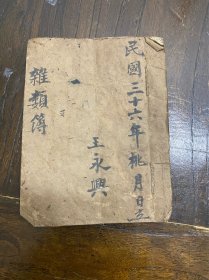 民國三十六年桃月日立
王永興
雜類簿